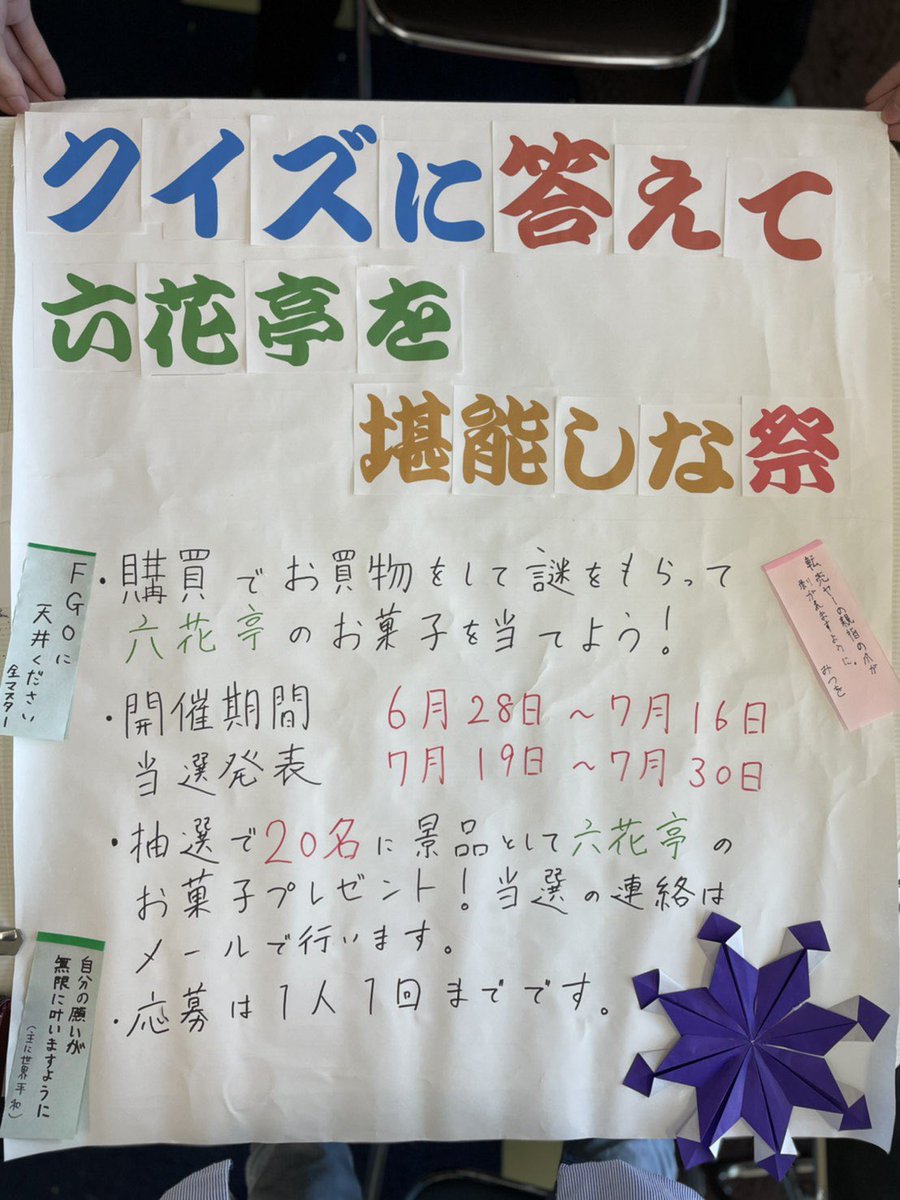 クイズに答えて
六花亭を
堪能しな祭
・購買でお買物をして謎をもらって
六花亭のお菓子を当てよう!
・開催期間 6月28日~7月16日
当選発表 7月19日~7月30日
・抽選で20名に景品として六花亭の
お菓子プレゼント!当選の連絡は
メールで行います。
・応募は1人1回までです。
FGOに
天井ください
全マスター
転売ヤーの親指の爪が
剥がれますように。
みつを
自分の願いが
無限に叶いますように
(主に世界平和)